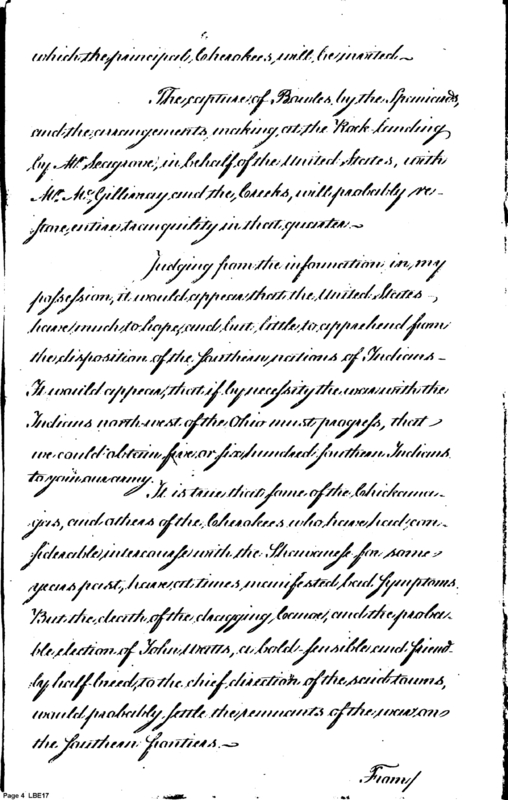 which the principal Cherokees, will be invited—
The capture of Bowles by the Spaniards,
and the arrangements making at the Rock landing
by Mr. Seagrove, in behalf of the United States, with
Mr. McGillivray and the Creeks, will probably re-
store entire tranquility in that quarter—
Judging from the information in my
possession, it would appear that the United States
have much to hope, and but little to apprehend from
the disposition of the southern nations of Indians—
It would appear, that if by necessity the war with the
Indians north west of the Ohio must progress, that
we could obtain five or six hundred southern Indians
to join our army.
It is true that some of the Chickama-
gas, and others of the Cherokees who have had con-
siderable intercourse with the Shawanese for some
years past, have at times, manifested bad symptoms.
But the death of the dragging Canoe, and the proba-
ble election of John Watts, a bold sensible and friend-
ly half breed, to the chief direction of the said towns,
would probably settle the remnants of the war, on
the southern frontiers.—
From/
Page 4 LBE17